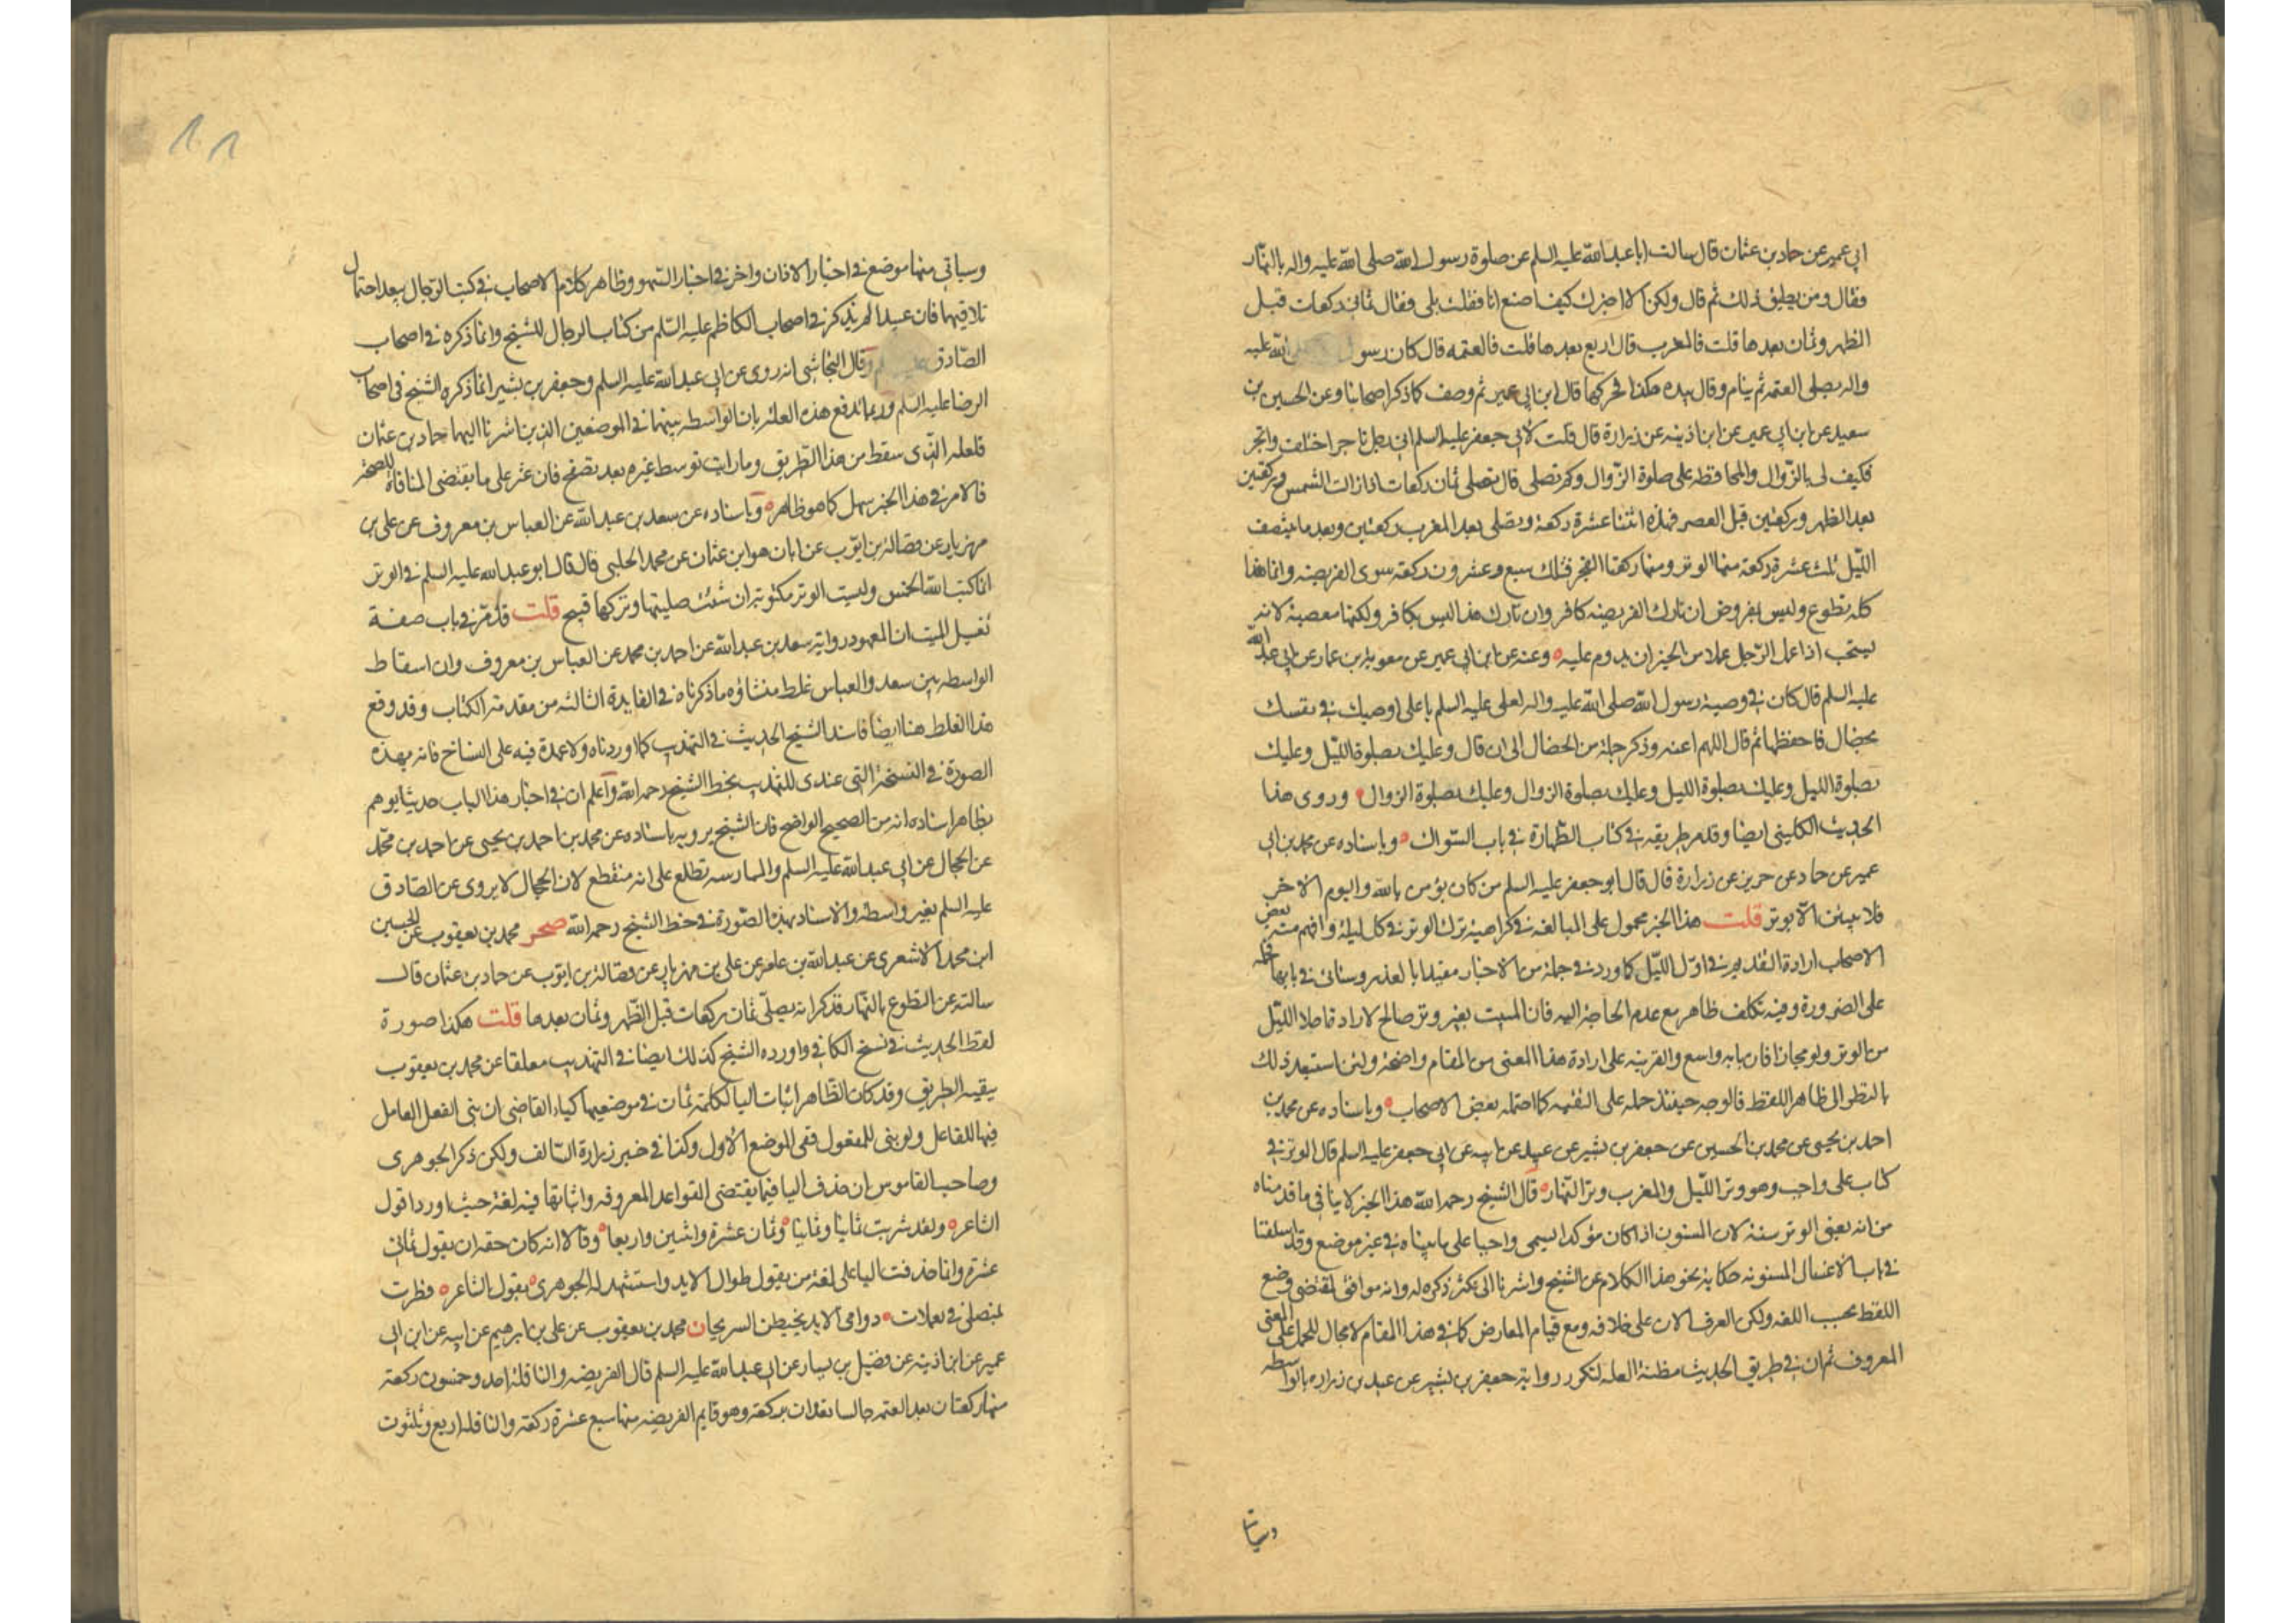 ابي عمير عن حماد بن عثمان قال سالت ابا عبد الله عليه السلم عن صلوة رسول الله صلى الله عليه واله بالنهار
فقال ومن يطيق ذلك ثم قال ولكن الا اخبرك كيف اصنع انا فقلت بلى فقال ثماني ركعات قبل
الظهر وثمان بعدها قلت فالمغرب قال اربع بعدها قلت فالعتمه قال كان رسول الله عليه
واله يصلى العتمه ثم ينام وقال بيده هكذا فحركها قال ابن ابي عمير ثم وصف كما ذكر اصحابنا وعن الحسين بن
سعيد عن ابن ابي عمير عن ابن اذينه عن زرارة قال قلت لابي جعفر عليه السلم اني رجل تاجر اختلف واتجر
فكيف لى بالزوال والمحافظه على صلوة الزوال وكم تصلى قال تصلى ثمان ركعات اذا زالت الشمس وركعتين
بعد الظهر وركعتين قبل العصر فهذه اثنتا عشرة ركعة وتصلى بعد المغرب ركعتين وبعد ما ينتصف
الليل ثلث عشرة ركعة منها الوتر ومنها ركعتا الفجر فتلك سبع وعشرون ركعة سوى الفريضه وانما هذا
كله تطوع وليس بمفروض ان تارك الفريضه كافر وان تارك هذا ليس بكافر ولكنها معصية لانه
يستحب اذا عمل الرجل عملا من الخير ان يدوم عليه ه وعنه عن ابن ابي عمير عن معوية بن عمار عن ابي عبد الله
عليه السلم قال كان في وصية رسول الله صلى الله عليه واله لعلى عليه السلم يا على اوصيك في نفسك
بخصال فاحفظها ثم قال اللهم اعنه وذكر جملة من الخصال الى ان قال وعليك بصلوة الليل وعليك
بصلوة الليل وعليك بصلوة الليل وعليك بصلوة الزوال وعليك بصلوة الزوال ه وروى هذا
الحديث الكليني ايضا وقد مر طريقه في كتاب الطهارة في باب السواك ه وباسناده عن محمد بن ابي
عمير عن حماد عن حريز عن زرارة قال قال ابو جعفر عليه السلم من كان يؤمن بالله واليوم الاخر
فلا يبيتن الا بوتر قلت هذا الخبر محمول على المبالغه في كراهية ترك الوتر في كل ليلة وافهم بعض
الاصحاب ارادة التقديم في اول الليل كما ورد في جملة من الاخبار مقيدا بالعذر وسياتي في بابها
على الضرورة وفيه تكلف ظاهر مع عدم الحاجة اليه فان المبيت بغير وتر صالح لارادة اخلا الليل
من الوتر ولو مجازا فان بابه واسع والقرينه على ارادة هذا المعنى من المقام واضحة ولئن استبعد ذلك
بالنظر الى ظاهر اللفظ فالوجه حينئذ حمله على التقيه كما احتمله بعض الاصحاب ه وباسناده عن محمد بن
احمد بن يحيى عن محمد بن الحسين عن جعفر بن بشير عن عبيد عن ابيه عن ابي جعفر عليه السلم قال الوتر في
كتاب على واجب وهو وتر الليل والمغرب وتر النهار ه قال الشيخ رحمه الله هذا الخبر لا ينافي ما قدمناه
من انه يعني الوتر سنة لان المسنون اذا كان مؤكدا يسمى واجبا على ما بيناه في غير موضع وقد اسلفنا
في باب الاغسال المسنونه حكاية نحو هذا الكلام عن الشيخ واشرنا الى تكثر ذكره له وانه موافق لمقتضى وضع
اللفظ بحسب اللغه ولكن العرف الان على خلافه ومع قيام المعارض كما في هذا المقام لا مجال للحمل على المعنى
المعروف ثم ان في طريق الحديث مظنة العله لتكرر رواية جعفر بن بشير عن عبيد بن زراره بالواسطه
وسياتي
وسياتي منها موضع في اخبار الاذان واخر في اخبار السهو وظاهر كلام الاصحاب في كتب الرجال بعد احتمال
تلاقيهما فان عبيدا لم يذكر في اصحاب الكاظم عليه السلم من كتاب الرجال للشيخ وانما ذكره في اصحاب
الصادق وقال النجاشي انه روى عن ابي عبد الله عليه السلم وجعفر بن بشير انما ذكره الشيخ في اصحاب
الرضا عليه السلم وربما تدفع هذه العله بان الواسطه بينهما في الموضعين الذين اشرنا اليهما حماد بن عثمان
فلعله الذى سقط من هذا الطريق وما رايت توسط غيره بعد تصفح فان عثر على ما يقتضى المنافاة للصحه
فالامر في هذا الخبر سهل كما هو ظاهر ه وباسناده عن سعد بن عبد الله عن العباس بن معروف عن على بن
مهزيار عن فضالة بن ايوب عن ابان هو ابن عثمان عن محمد الحلبي قال قال ابو عبد الله عليه السلم في الوتر
انما كتب الله الخمس وليست الوتر مكتوبة ان شئت صليتها وتركها قبيح قلت قد مر في باب صفة
تغسيل الميت ان المعهود رواية سعد بن عبد الله عن احمد بن محمد عن العباس بن معروف وان اسقاط
الواسطه بين سعد والعباس غلط منشاؤه ما ذكرناه في الفايدة الثالثه من مقدمة الكتاب وقد وقع
هذا الغلط هنا ايضا فاسند الشيخ الحديث في التهذيب كما اوردناه ولا عهدة فيه على النساخ فانه بهذه
الصورة في النسخة التي عندى للتهذيب بخط الشيخ رحمه الله واعلم ان في اخبار هذا الباب حديثا يوهم
بظاهر اسناده انه من الصحيح الواضح فان الشيخ يرويه باسناده عن محمد بن احمد بن يحيى عن احمد بن محمد
عن الحجال عن ابي عبد الله عليه السلم والممارسه تطلع على انه منقطع لان الحجال لا يروى عن الصادق
عليه السلم بغير واسطه والاسناد بهذه الصورة في خط الشيخ رحمه الله صحر محمد بن يعقوب عن الحسين
ابن محمد الاشعرى عن عبد الله بن عامر عن على بن مهزيار عن فضالة بن ايوب عن حماد بن عثمان قال
سالته عن التطوع بالنهار فذكر انه يصلى ثمان ركعات قبل الظهر وثمان بعدها قلت هكذا صورة
لفظ الحديث في نسخ الكافي واورده الشيخ كذلك ايضا في التهذيب معلقا عن محمد بن يعقوب
ببقية الطريق وقد كان الظاهر اثبات اليا لكلمة ثمان في موضعيها كياء القاضي ان بني الفعل العامل
فيها للفاعل ولو بنى للمفعول ففي الموضع الاول وكذا في خبر زرارة السالف ولكن ذكر الجوهرى
وصاحب القاموس ان حذف اليا فيما يقتضى القواعد المعروفه واثباتها فيه لغة حيث اوردا قول
الشاعر ه ولقد شربت ثمانيا وثمانيا ه وثمان عشرة واثنين واربعا ه وقالا انه كان حقه ان يقول ثماني
عشرة وانما حذفت اليا على لغة من يقول طوال الايد واستشهد له الجوهرى بقول الشاعر ه فطرت
بمنصلى في يعملات ه دوامى الايد يخبطن السريحا ن محمد بن يعقوب عن على بن ابرهيم عن ابيه عن ابن ابي
عمير عن ابن اذينه عن فضيل بن يسار عن ابي عبد الله عليه السلم قال الفريضه والنافلة احد وخمسون ركعة
منها ركعتان بعد العتمه جالسا تعدان بركعة وهو قايم الفريضه منها سبع عشرة ركعة والنافله اربع وثلثون